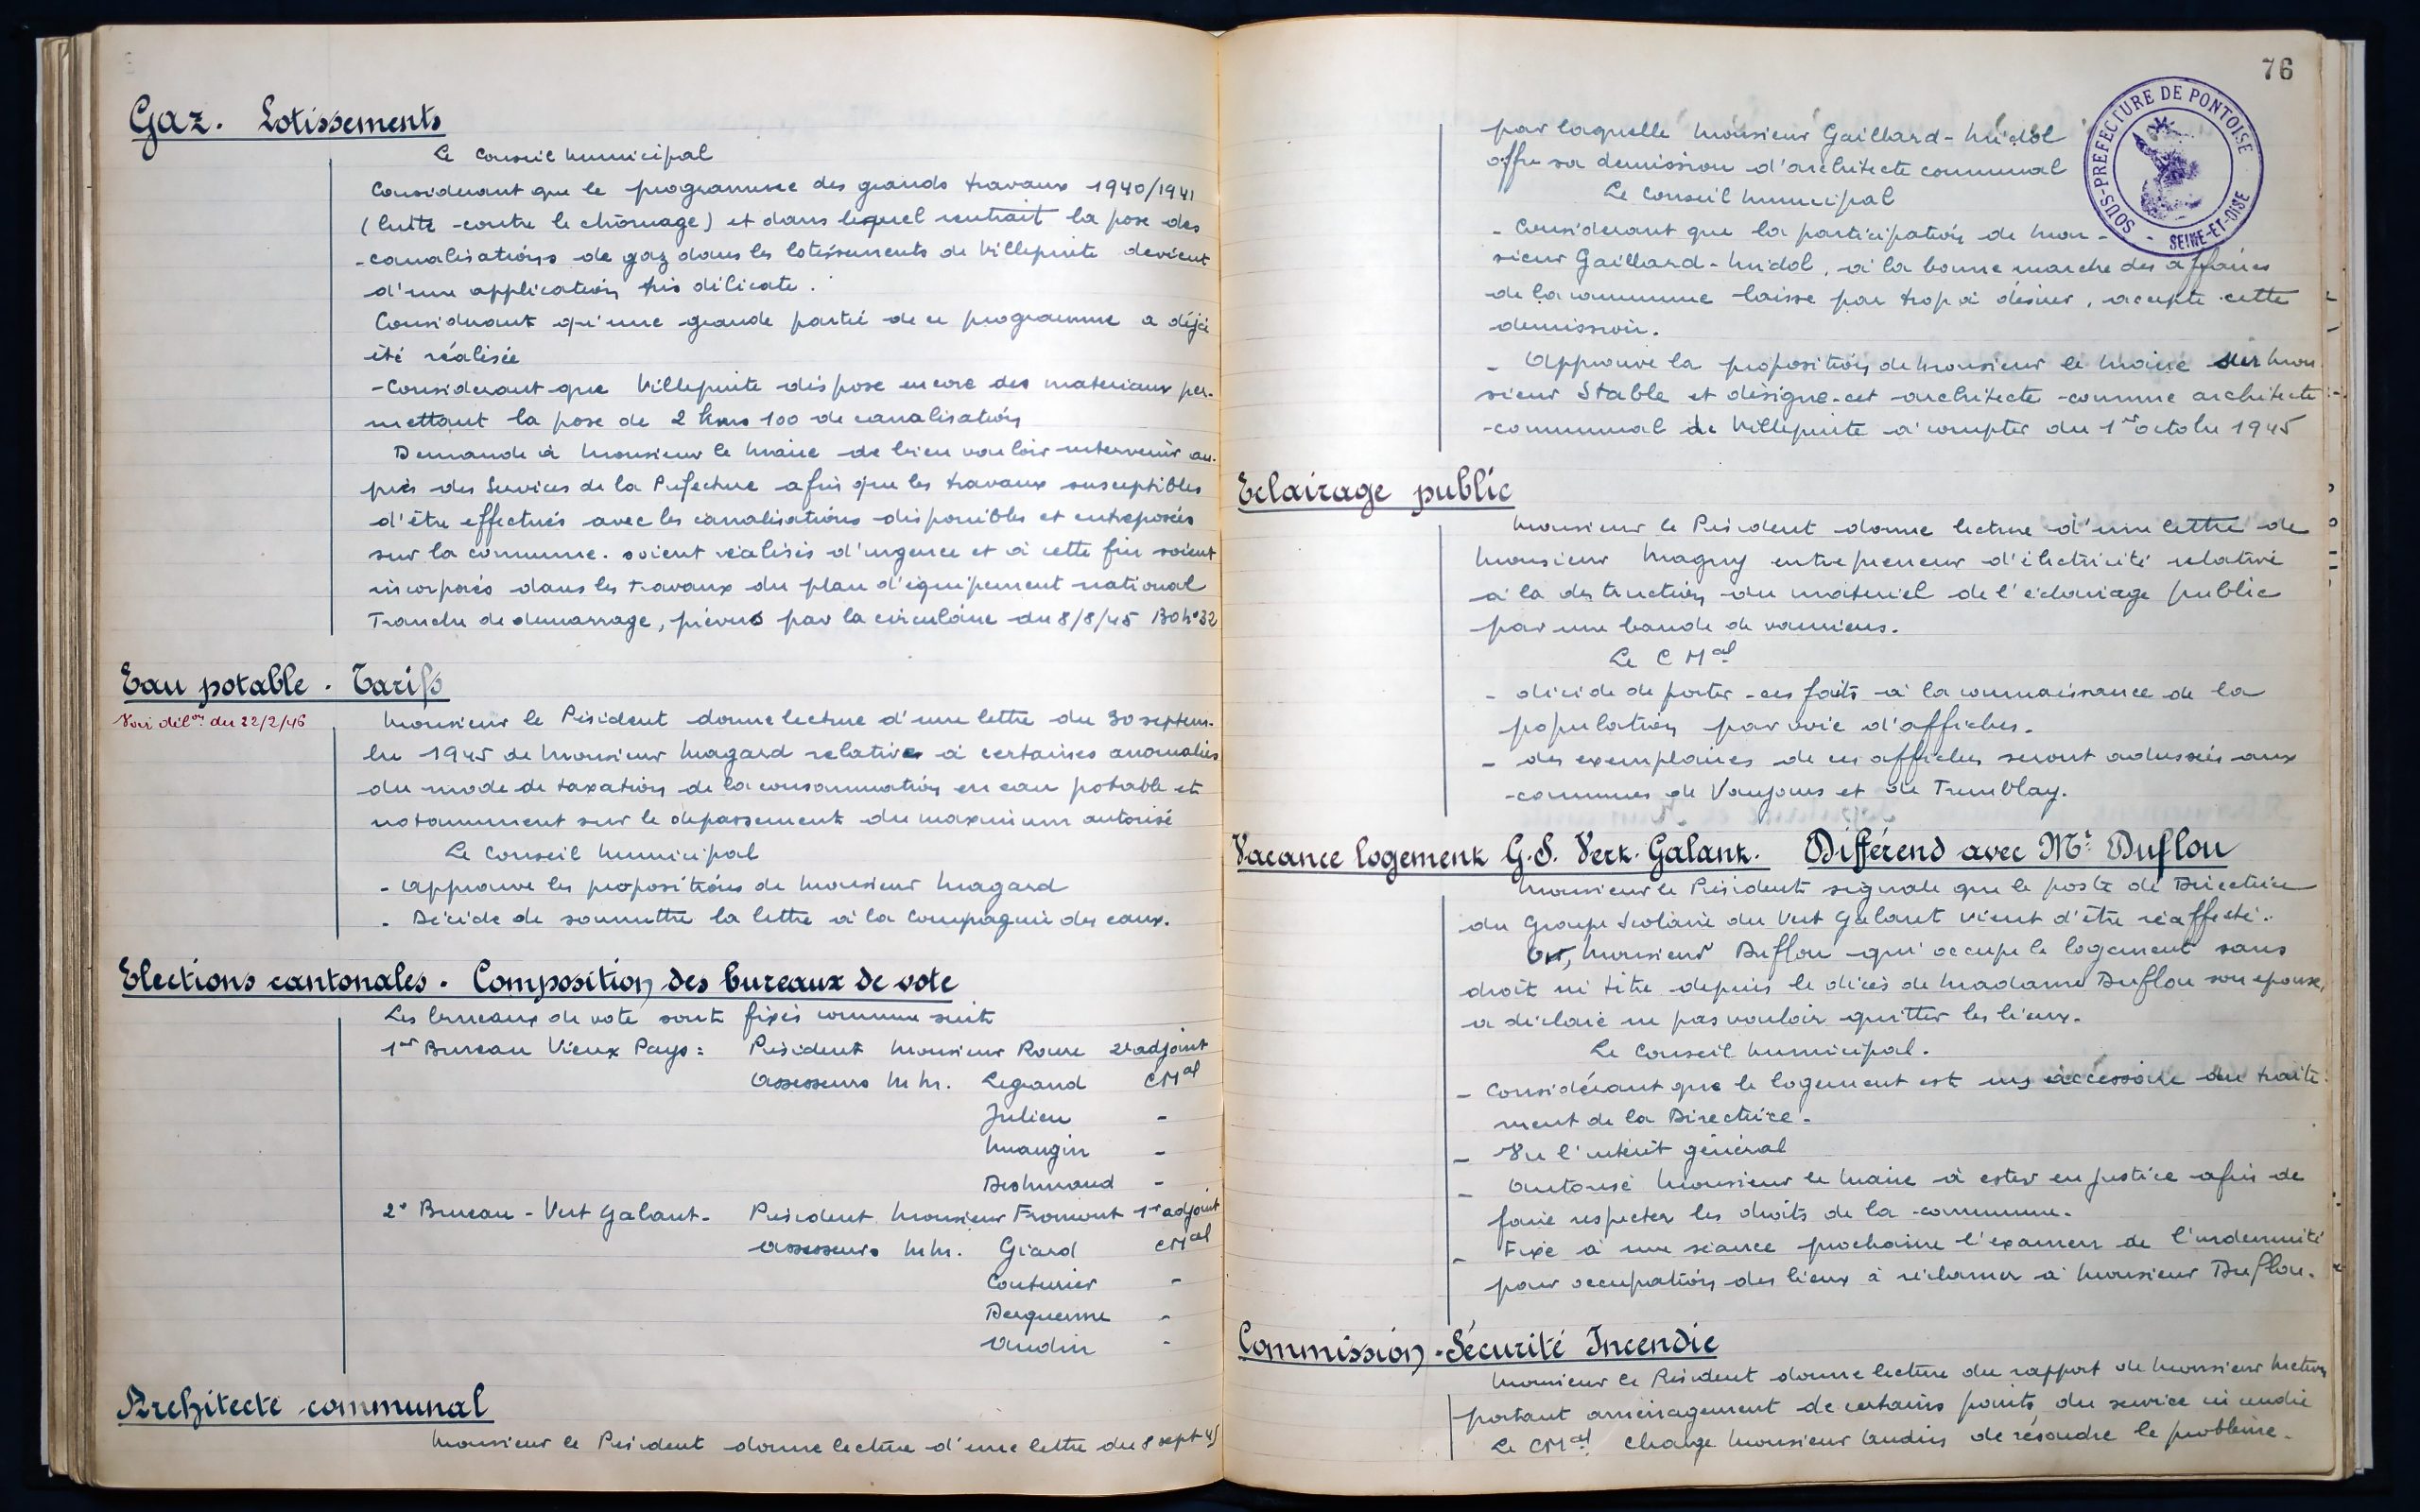 Gaz. Lotissements
Le Conseil Municipal
Considerant que le programme des grands travaux 1940/1941
(lutte contre le chômage) et dans lequel rentrait la pose des
canalisations de gaz dans les lotissements de Villepinte devient
d'une application très délicate.
Considerant qu'une grande partie de ce programme a déjà
été réalisée
- Considerant que Villepinte dispose encore des materiaux per-
mettant la pose de 2 kms 100 de canalisation
Demande à Monsieur le Maire de bien vouloir intervenir au-
près des Services de la Préfecture afin que les travaux susceptibles
d'être effectués avec les canalisations disponibles et entreposées
sur la commune. soient réalisés d'urgence et à cette fin soient
incorporés dans les travaux du plan d'équipement national
Tranche de demarrage, prévus par la circulaire du 8/8/45 BO N° 32
Eau potable. Tarifs
Voir dél.on du 22/2/46
Monsieur le Président donne lecture d'une lettre du 30 septem-
bre 1945 de Monsieur Magard relative à certaines anomalies
du mode de taxation de la consommation en eau potable et
notamment sur le dépassement du maximum autorisé
Le Conseil Municipal
- Approuve les propositions de Monsieur Magard
- Décide de soumettre la lettre à la Compagnie des eaux.
Elections cantonales. Composition des bureaux de vote
Les bureaux de vote sont fixés comme suit
1er Bureau Vieux Pays = Président Monsieur Roure 2e adjoint
Assesseurs M M. Legrand CMal
Julien -
Maugin -
-
2e Bureau - Vert Galant - Président Monsieur Fromont 1er adjoint
Assesseurs M M. Giard CMal
Couturier -
Derquenne -
Vaudin -
Architecte communal
Monsieur le Président donne lecture d'une lettre du 8 sept 45
76
SOUS-PREFECTURE DE PONTOISE
SEINE-ET-OISE
par laquelle Monsieur Gaillard-Midol
offre sa demission d'architecte communal
Le Conseil Municipal
- Considerant que la participation de Mon-
sieur Gaillard-Midol, à la bonne marche des affaires
de la commune laisse par trop à désirer, accepte cette
demission.
- Approuve la proposition de Monsieur le Maire sur Mon
sieur Stable et désigne cet architecte comme architecte
communal de Villepinte à compter du 1er octobre 1945
Eclairage public
Monsieur le Président donne lecture d'une lettre de
Monsieur Magny entrepreneur d'électricité relative
à la destruction du matériel de l'éclairage public
par une bande de vauriens.
Le C Mal
- décide de porter ces faits à la connaissance de la
population par voie d'affiches.
- des exemplaires de ces affiches seront adressés aux
communes de Vaujours et de Tremblay.
Vacance logement G.S. Vert. Galant. Différend avec Mr Duflou
Monsieur le Président signale que le poste de Directrice
du Groupe Scolaire du Vert Galant vient d'être réaffecté.
Or, Monsieur Duflou qui occupe le logement sans
droit ni titre depuis le décès de Madame Duflou son epouse,
a déclaré ne pas vouloir quitter les lieux.
Le Conseil Municipal.
- Considérant que le logement est un accessoire du traite-
ment de la Directrice.
- Vu l'intérêt général
- Autorise Monsieur le Maire à ester en justice afin de
faire respecter les droits de la commune.
- Fixe à une séance prochaine l'examen de l'indemnité
pour occupation des lieux à réclamer à Monsieur Duflou.
Commission. Sécurité Incendie
Monsieur le Président donne lecture du rapport de Monsieur
portant aménagement de certains points du service incendie
Le CMal charge Monsieur de résoudre le problème.